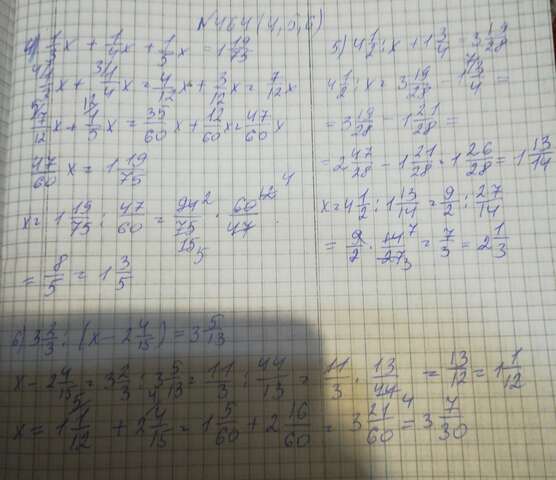 №464(4,5,6)
4) 1/3x + 1/4x + 1/5x = 1 19/75
1/3x + 1/4x = 4/12x + 3/12x = 7/12x
7/12x + 1/5x = 35/60x + 12/60x = 47/60x
47/60x = 1 19/75
x = 1 19/75 : 47/60 = 94/75 · 60/47
= 8/5 = 1 3/5
5) 4 1/2 : x + 1 3/4 = 3 19/28
4 1/2 : x = 3 19/28 - 1 3/4 =
= 3 19/28 - 1 21/28 =
= 2 47/28 - 1 21/28 = 1 26/28 = 1 13/14
x = 4 1/2 : 1 13/14 = 9/2 : 27/14
= 9/2 · 14/27 = 7/3 = 2 1/3
6) 3 2/3 : (x - 2 4/15) = 3 5/13
x - 2 4/15 = 3 2/3 : 3 5/13 = 11/3 : 44/13 = 11/3 · 13/44 = 13/12 = 1 1/12
x = 1 1/12 + 2 4/15 = 1 5/60 + 2 16/60 = 3 21/60 = 3 7/30